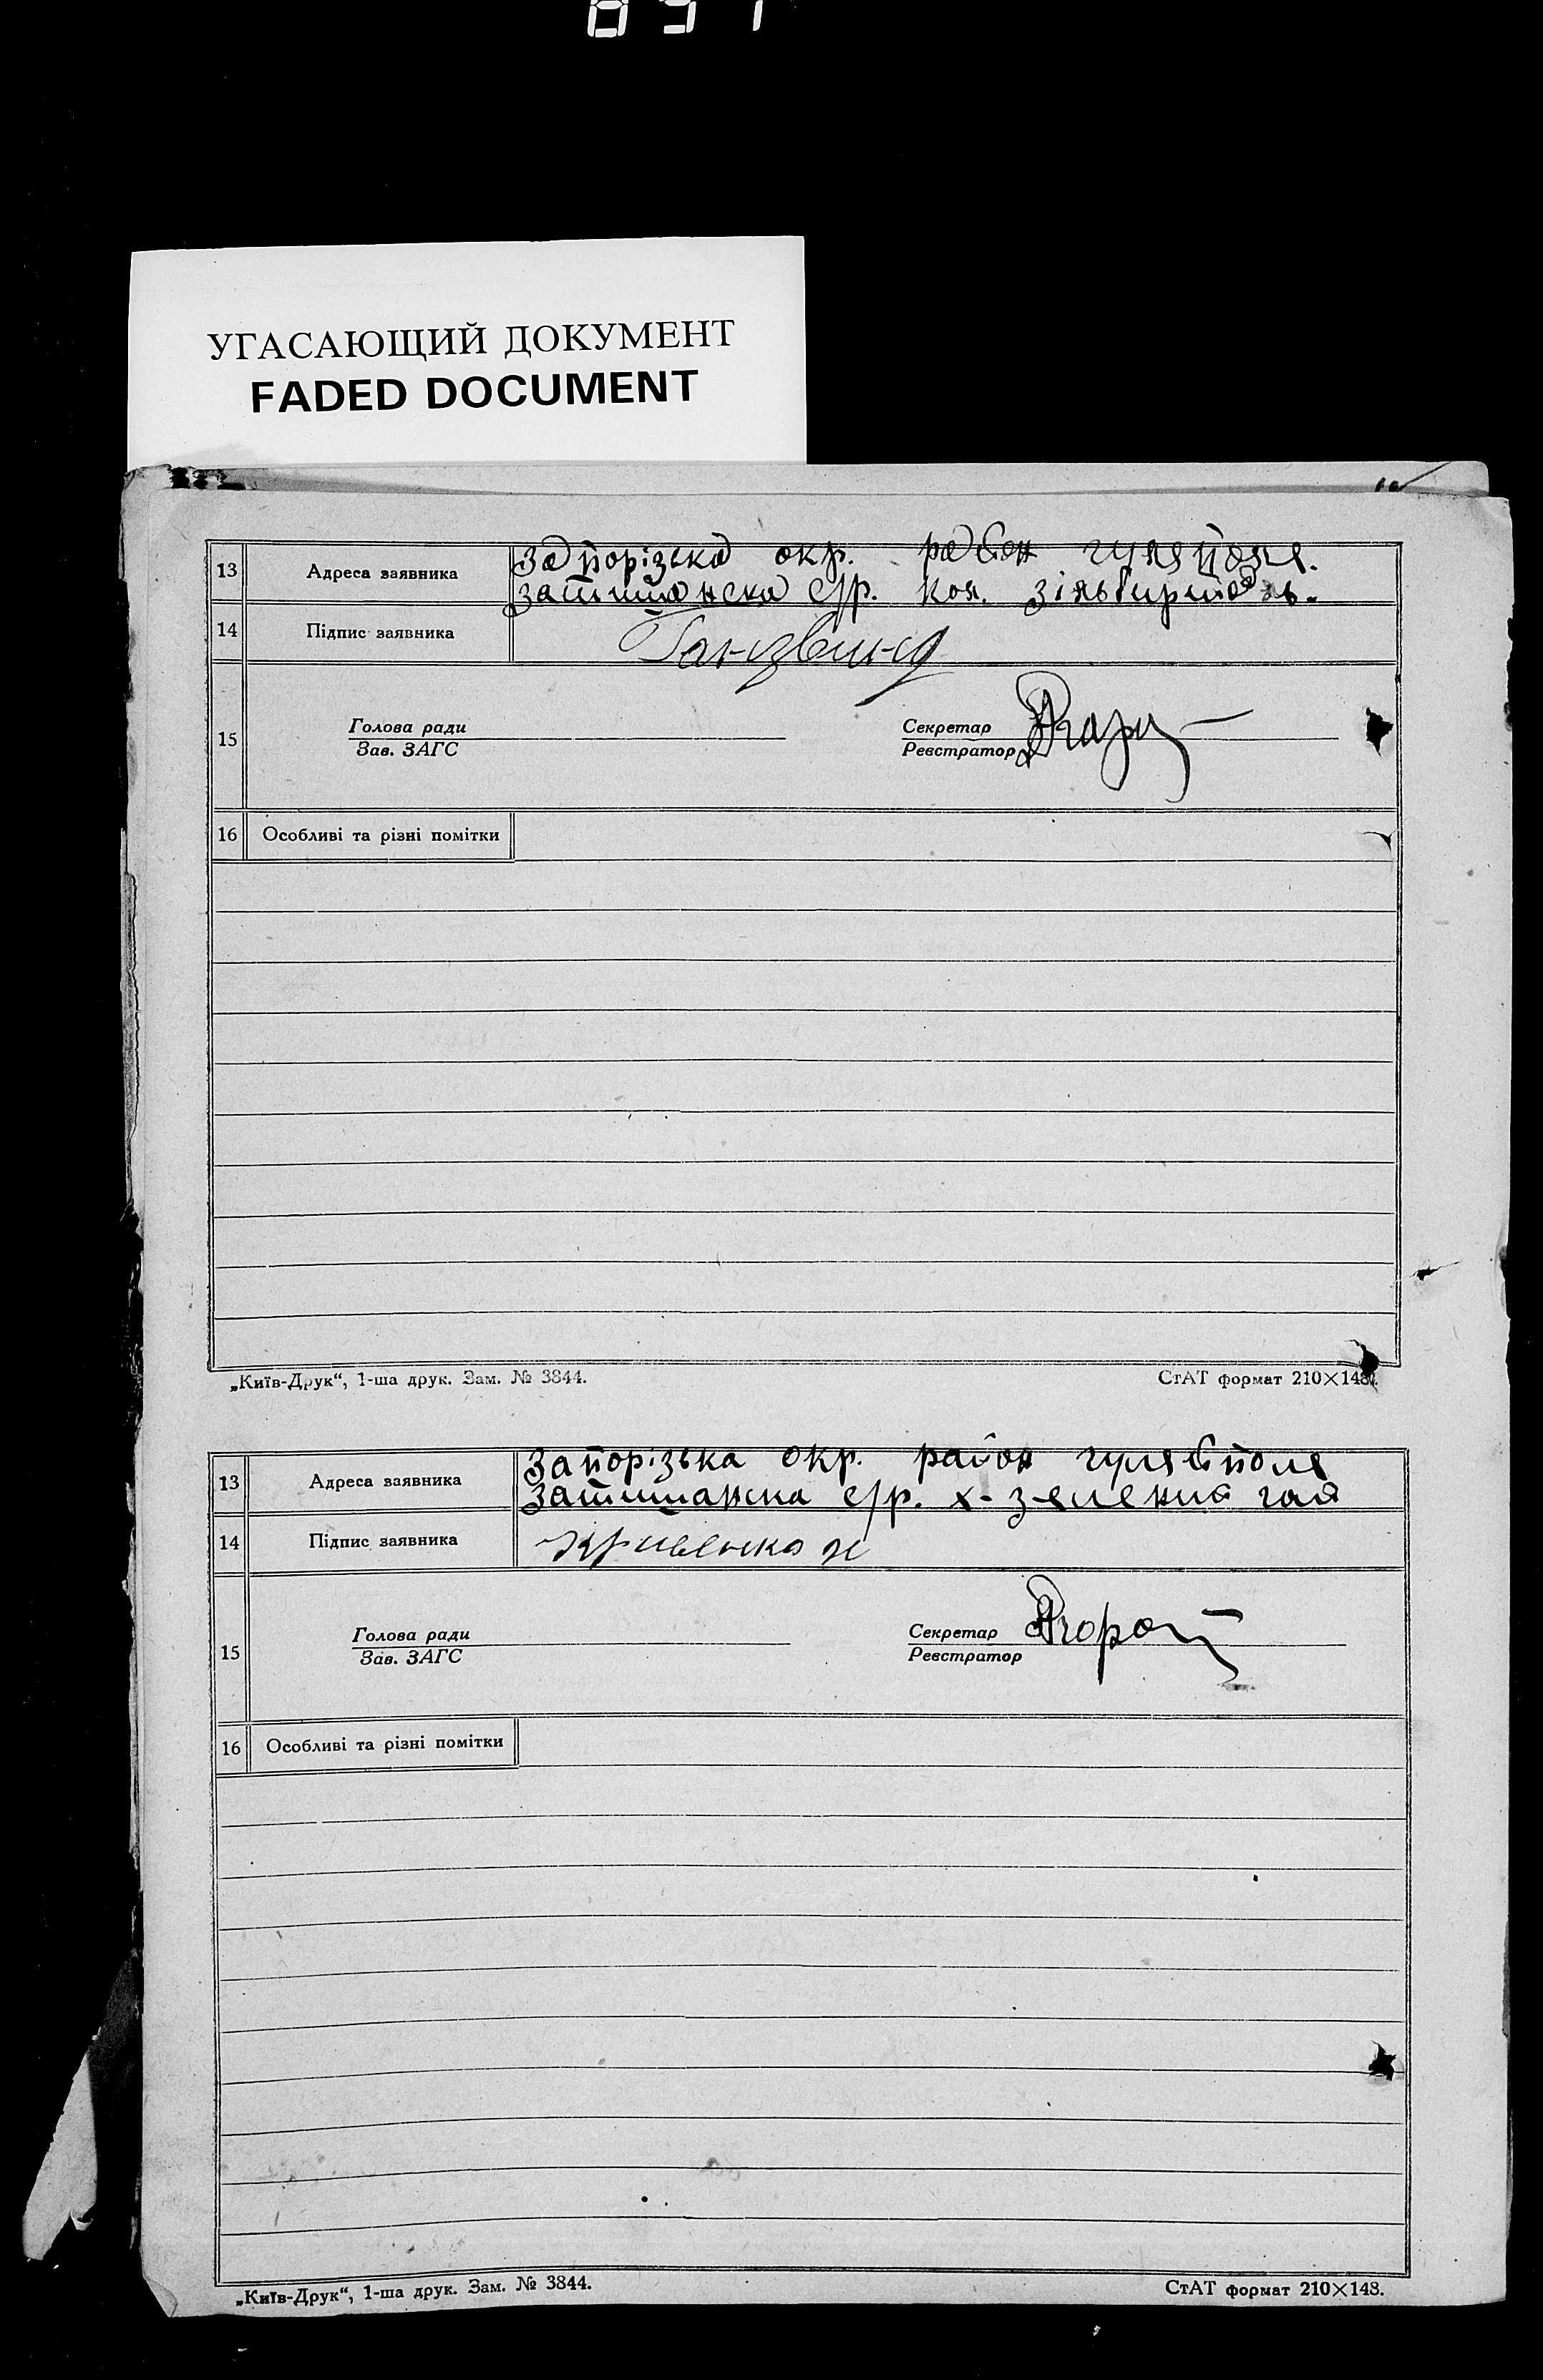 УГАСАЮЩИЙ ДОКУМЕНТ
FADED DOCUMENT
13 Адреса заявника Запорізька окр. район гуляйполя.
Затишанска с/р. кол. зільберталь.
14 Підпис заявника
15 Голова ради Секретар
Зав. ЗАГС Реєстратор
16 Особливі та різні помітки
„Київ-Друк“, 1-ша друк. Зам. № 3844. СтАТ формат 210×148.
13 Адреса заявника Запорізька окр. район гуляйполя
Затишанска с/р. х- зелений гай
14 Підпис заявника
15 Голова ради Секретар
Зав. ЗАГС Реєстратор
16 Особливі та різні помітки
„Київ-Друк“, 1-ша друк. Зам. № 3844. СтАТ формат 210×148.